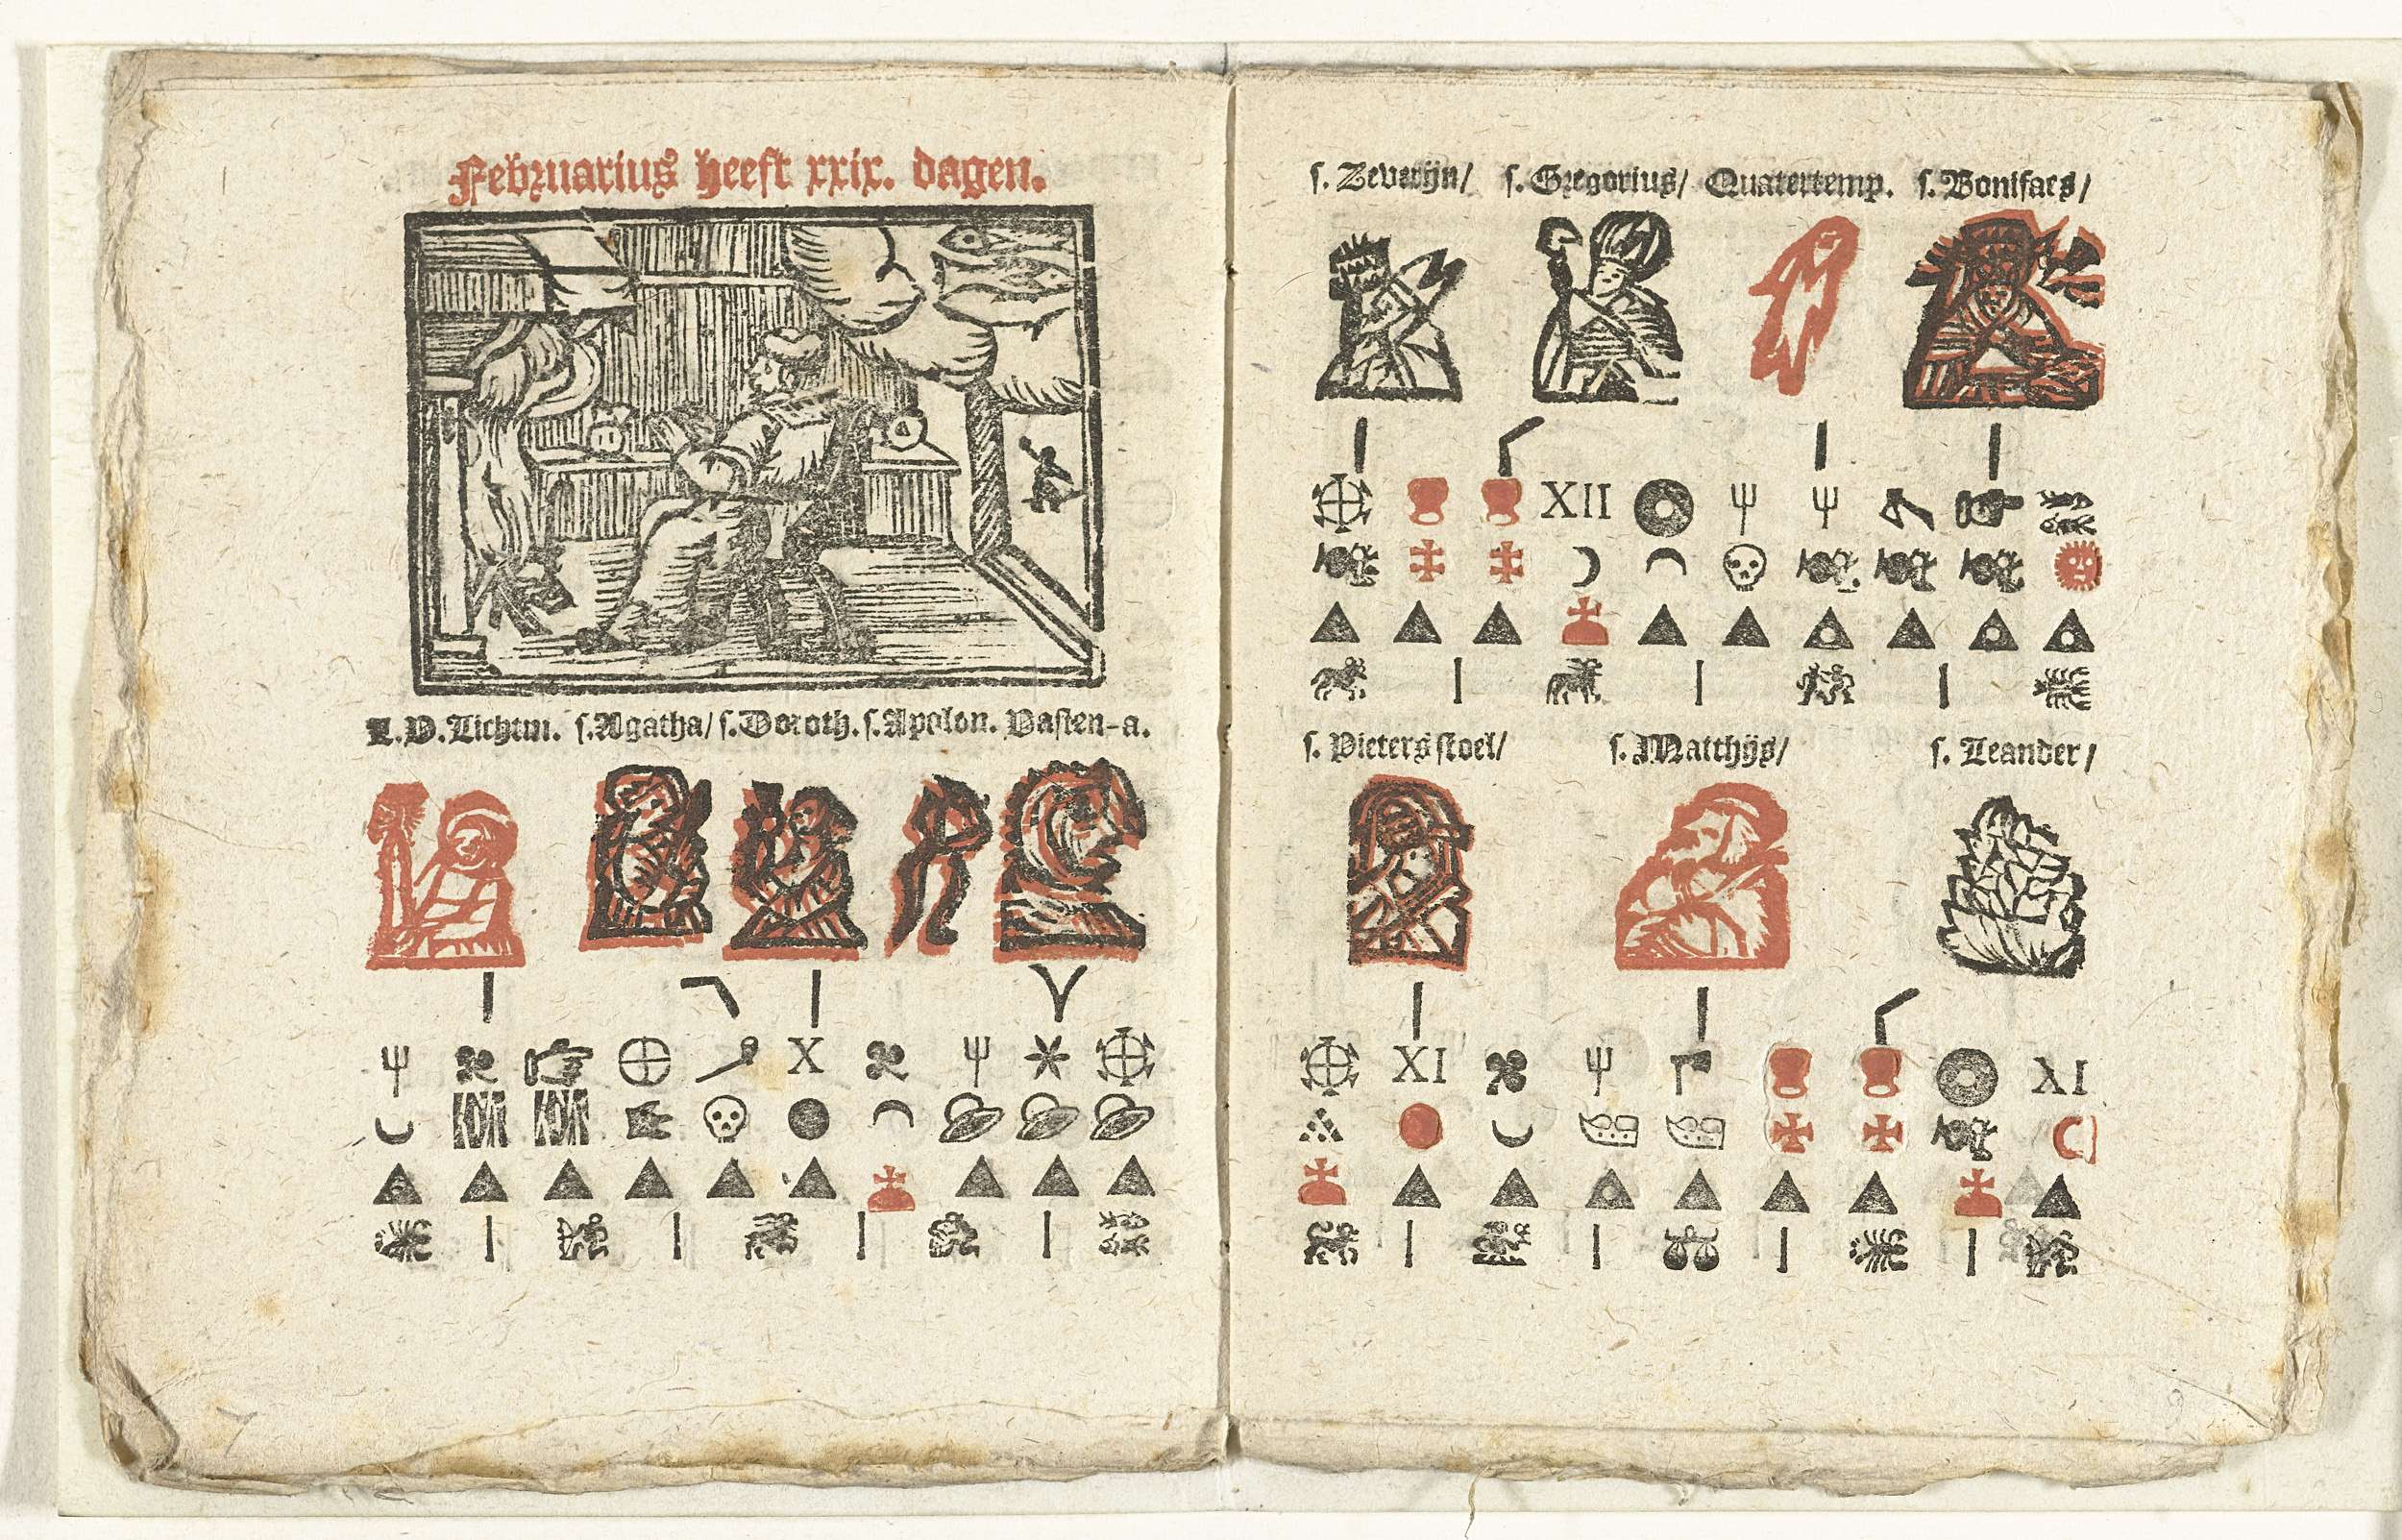 Februarius heeft xxix. dagen.
L.V.Lichtm. s.Agatha/ s.Doroth. s.Apolon. Vasten-a.
X
s. Zeverijn/ s.Gregorius/ Quatertemp. s.Bonifaes/
XII
s. Pieters stoel/ s.Matthijs/ s. Leander/
XI XI